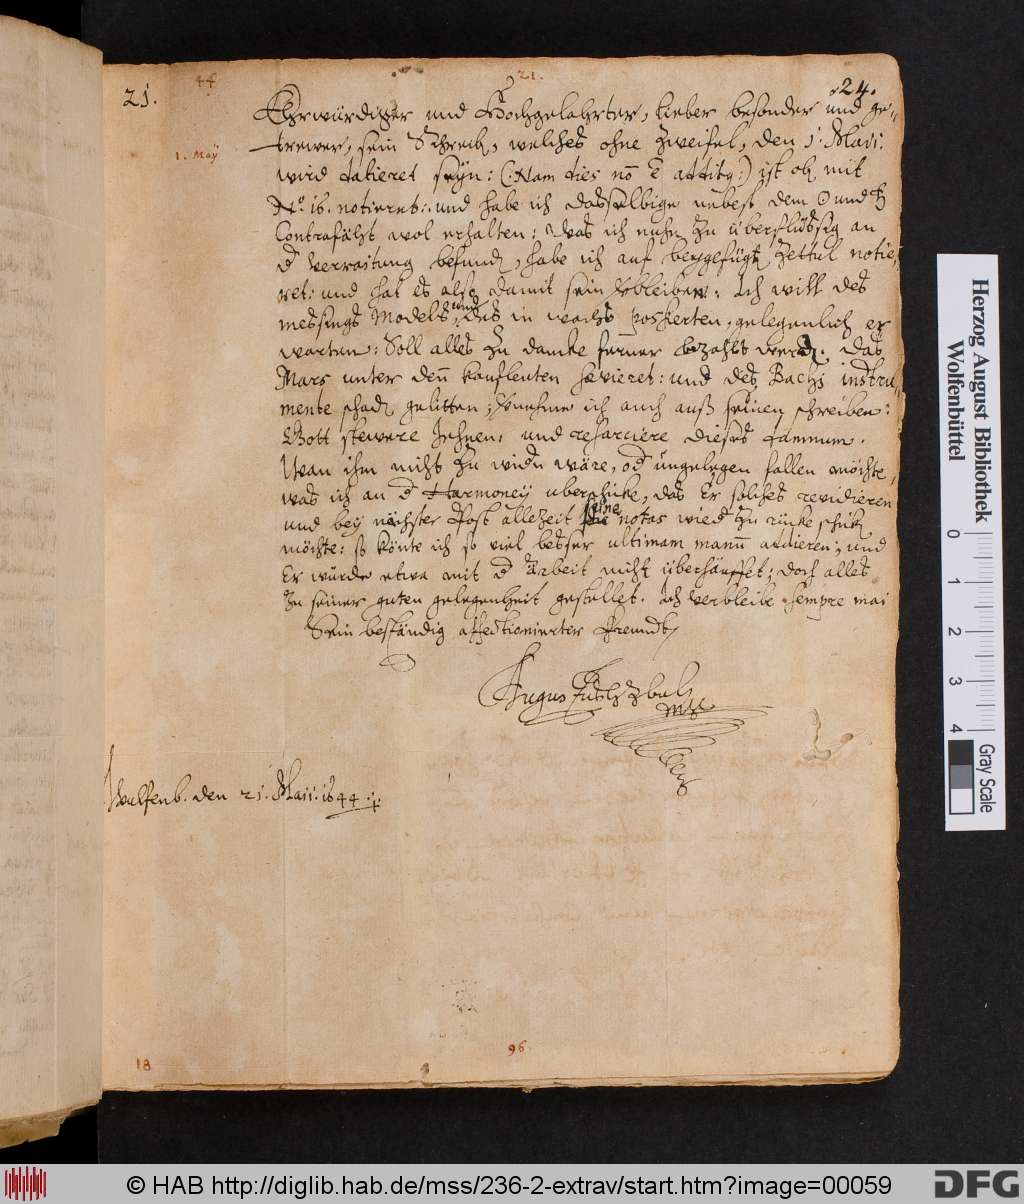 21.
44
21.
24.
Ehrwürdiger und Hochgelahrter, lieber besonder und ge-
trewer, sein Schreib, welches ohne Zweifel, den 1. Maii:
1. Maÿ
wird datieret seÿn: (: Nam dies nō ē :) ist mit
No. 16. notieret: und habe ich dasselbige nebest dem ☉ und ♄
Contrafäht wol erhalten: Was ich nuhn zu überflüssig an
d verraitung befund, habe ich auf beygefügt Zettul notie-
ret: und hat es also damit sein verbleiben. Ich will des
messings Models, und des in wachs poszierten, gelegenlich er
warten: Soll alles zu dancke ferner bezahlt werd. das
Mars unter den Kaufleuten sevieret: und des Bachj instru-
mente schad gelitten; vernehme ich auch auß seinen schreiben:
Gott stewere Jehnen: und resarciere dieses damnum.
Wan ihm nicht zu widn wäre, od ungelegen fallen möchte,
was ich an d Harmoneij uberschicke, das Er solches revidieren
und bey nechster Post allezeit seine notas wied zu rücke schick
möchte: so könte ich so viel besser ultimam manū addieren; und
Er würde etwa mit d Arbeit nicht überhäuffet; doch alles
zu seiner guten gelegenheit gestellet. Ich verbleibe semper mai
Sein beständig affectionierter Freundt
Augustus HzBuL
mpp
Wulfenb. den 21. Maii. 1644.
18
96
Herzog August Bibliothek
Wolfenbüttel
0 1 2 3 4
Gray Scale
© HAB http://diglib.hab.de/mss/236-2-extrav/start.htm?image=00059
DFG